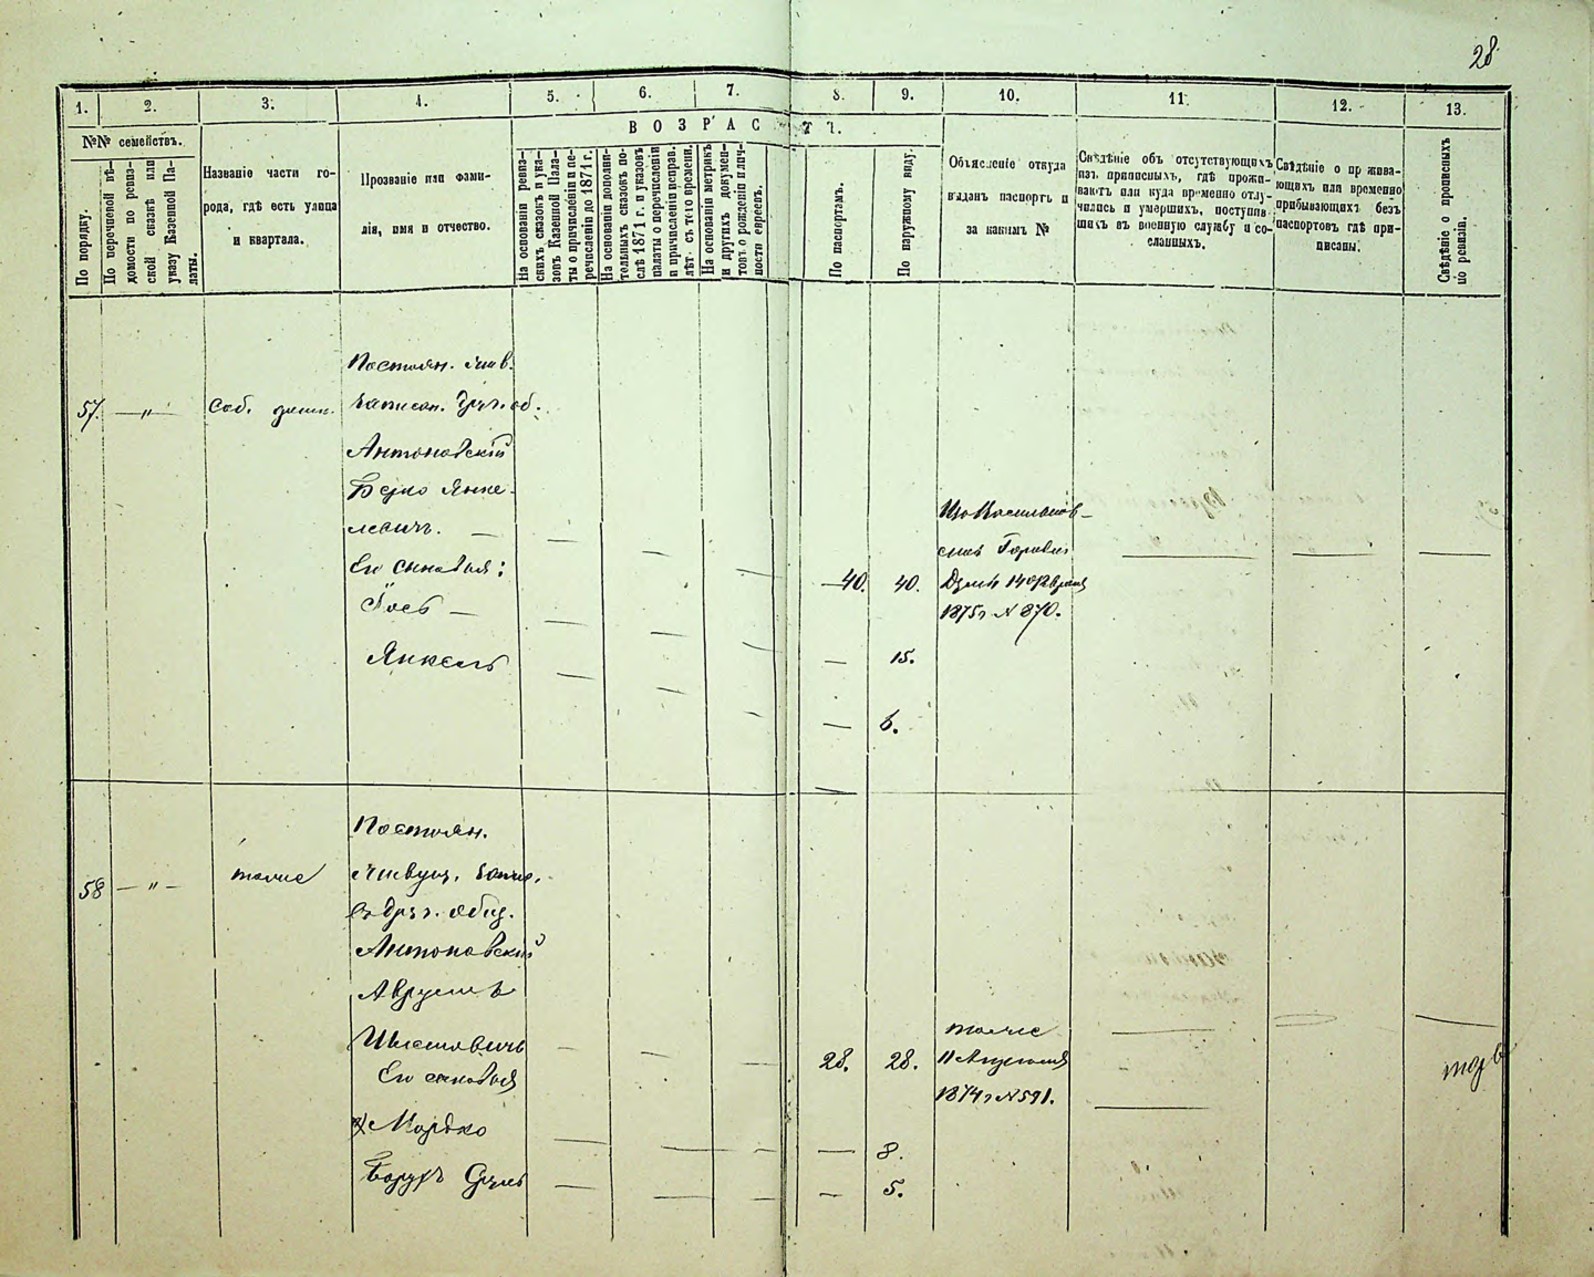 28
1. 2. 3. 4. 5. 6. 7. 8. 9. 10. 11. 12. 13.
№№ семействъ.
По порядку.
По перечневой вѣ-
домости по ревиз-
ской сказкѣ или
указу Казенной Па-
латы.
Названіе части го-
рода, гдѣ есть улица
и квартала.
Прозваніе или фами-
лія, имя и отчество.
ВОЗРАСТЪ.
На основаніи ревиз-
скихъ сказокъ и ука-
зовъ Казенной Пала-
ты о причисленіи и пе-
речисленіи до 1871 г.
На основаніи дополни-
тельныхъ сказокъ по-
слѣ 1871 г. и указовъ
палаты о перечисленіи
и причисленіи исправ.
лѣт. съ того времени.
На основаніи метрикъ
и другихъ докумен-
товъ о рожденіи и лич-
ности евреевъ.
По паспортамъ.
По наружному виду.
Объясненіе откуда
выданъ паспортъ и
за какимъ №
Свѣдѣніе объ отсутствующихъ
изъ приписныхъ, гдѣ прожи-
ваютъ или куда временно отлу-
чились и умершихъ, поступив-
шихъ въ военную службу и со-
сланныхъ.
Свѣдѣніе о прожива-
ющихъ или временно
прибывающихъ безъ
паспортовъ гдѣ при-
писаны.
Свѣдѣніе о прописныхъ
по ревизіи.
57. — „ —
Постоян. жив.
записан. друг. об.
Антоновскій
Берко Янке-
левичъ. —
Его сыновья:
Іось —
Янкель
40. 40.
14 Февраля
1875 г № 870.
— 15.
— 6.
58 — „ — тоже
Постоян.
живущ. запис.
въ друг. общ.
Антоновскій
Аврумъ
Его сыновья
Мордко
Борухъ Сруль
28. 28.
тоже
11 Августа
1874 г № 591.
— 8.
— 5.